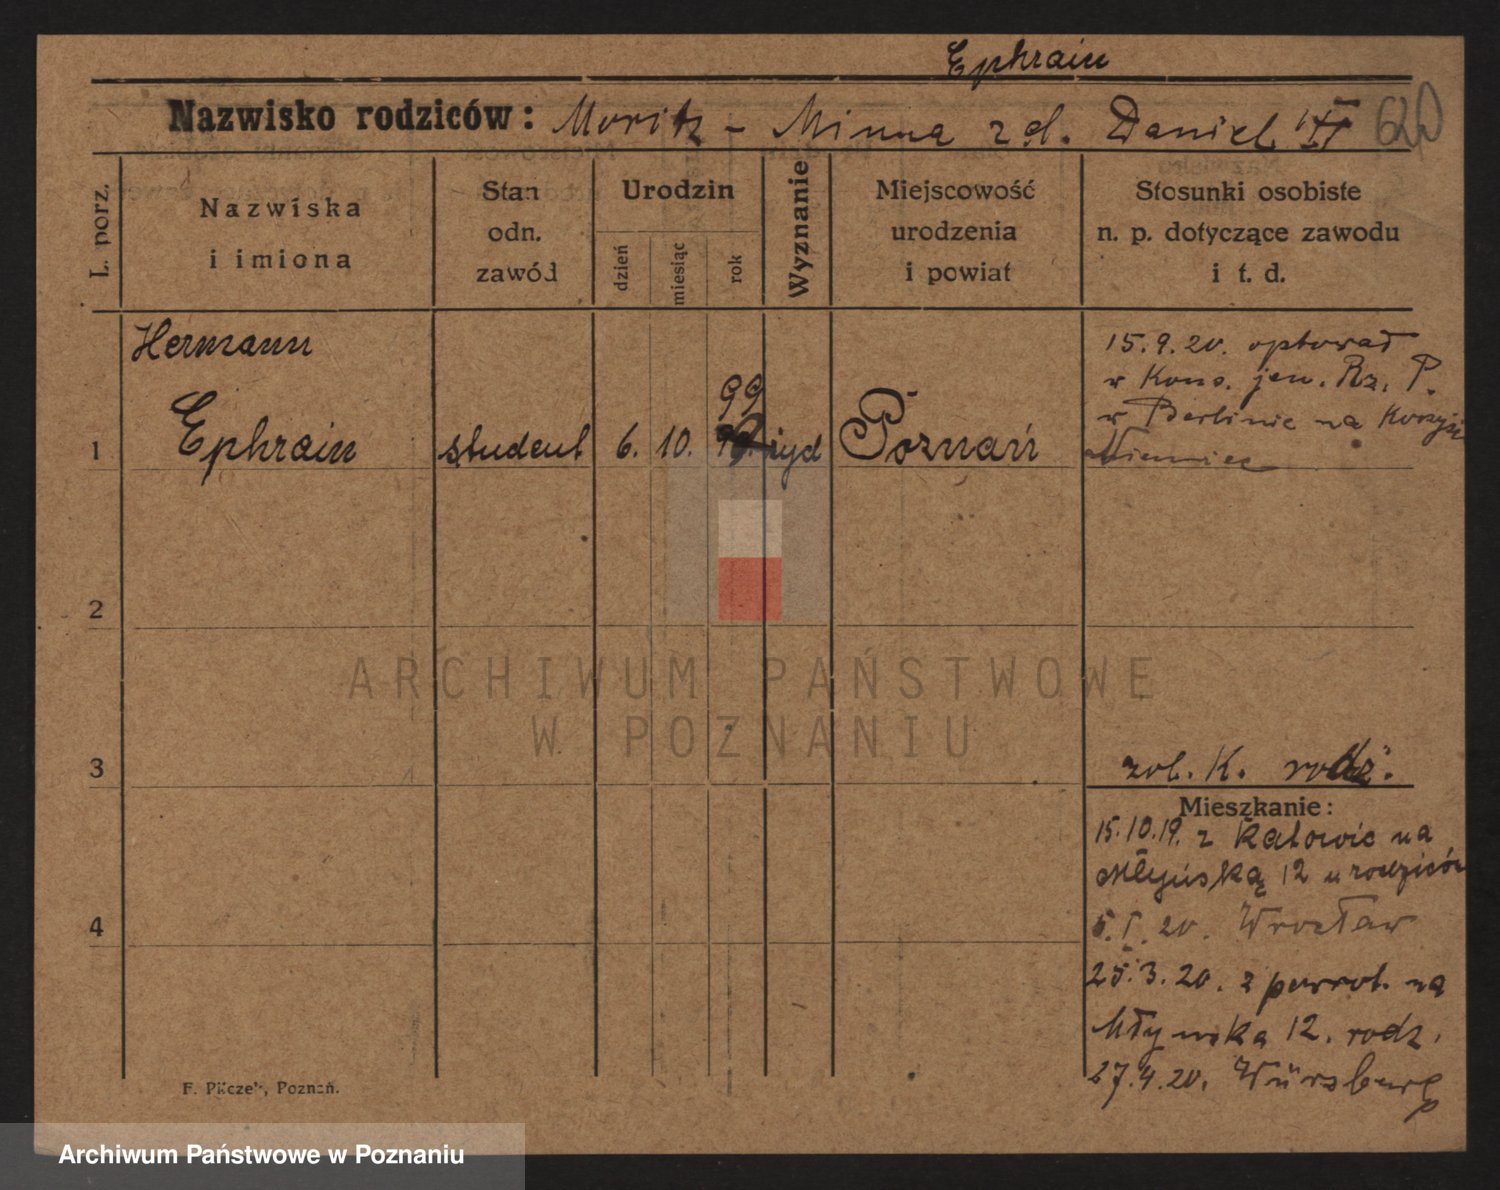 Ephraim
Nazwisko rodziców: Moritz - Minna z d. Daniel
L. porz.
Nazwiska
i imiona
Stan
odn.
zawód
Urodzin
dzień
miesiąc
rok
Wyznanie
Miejscowość
urodzenia
i powiat
Stosunki osobiste
n. p. dotyczące zawodu
i t. d.
Hermann
99
1 Ephraim student 6. 10. żyd Poznań
15.9.20. optował
w Kons. jen. Rz. P.
w Berlinie na korzyść
Niemiec
2
ARCHIWUM PAŃSTWOWE
W POZNANIU
3
zob. K. rodz.
Mieszkanie:
15.10.19. z Katowic na
Młyńską 12 u rodziców
4
5.I.20. Wrocław
25.3.20. z powrot. na
Młyńska 12. rodz.
27.4.20. Würzburg
F. Pilczek, Poznań.
Archiwum Państwowe w Poznaniu